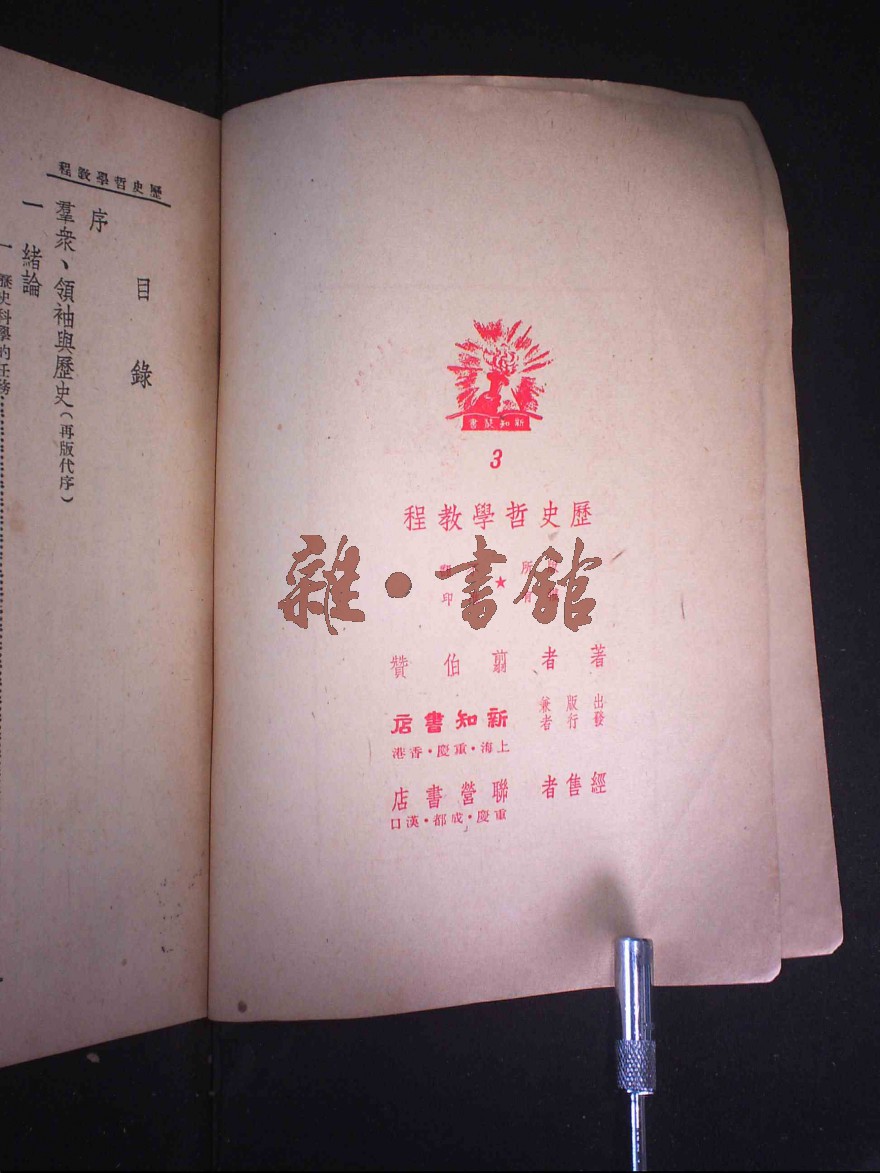 新知叢書
3
歷史哲學教程
★
雜・書館
著者 翦伯贊
出版兼
發行者
新知書店
上海・重慶・香港
經售者 聯營書店
重慶・成都・漢口
歷史哲學教程
目錄
序
羣衆、領袖與歷史（再版代序）
一 緒論
一 歷史科學的任務